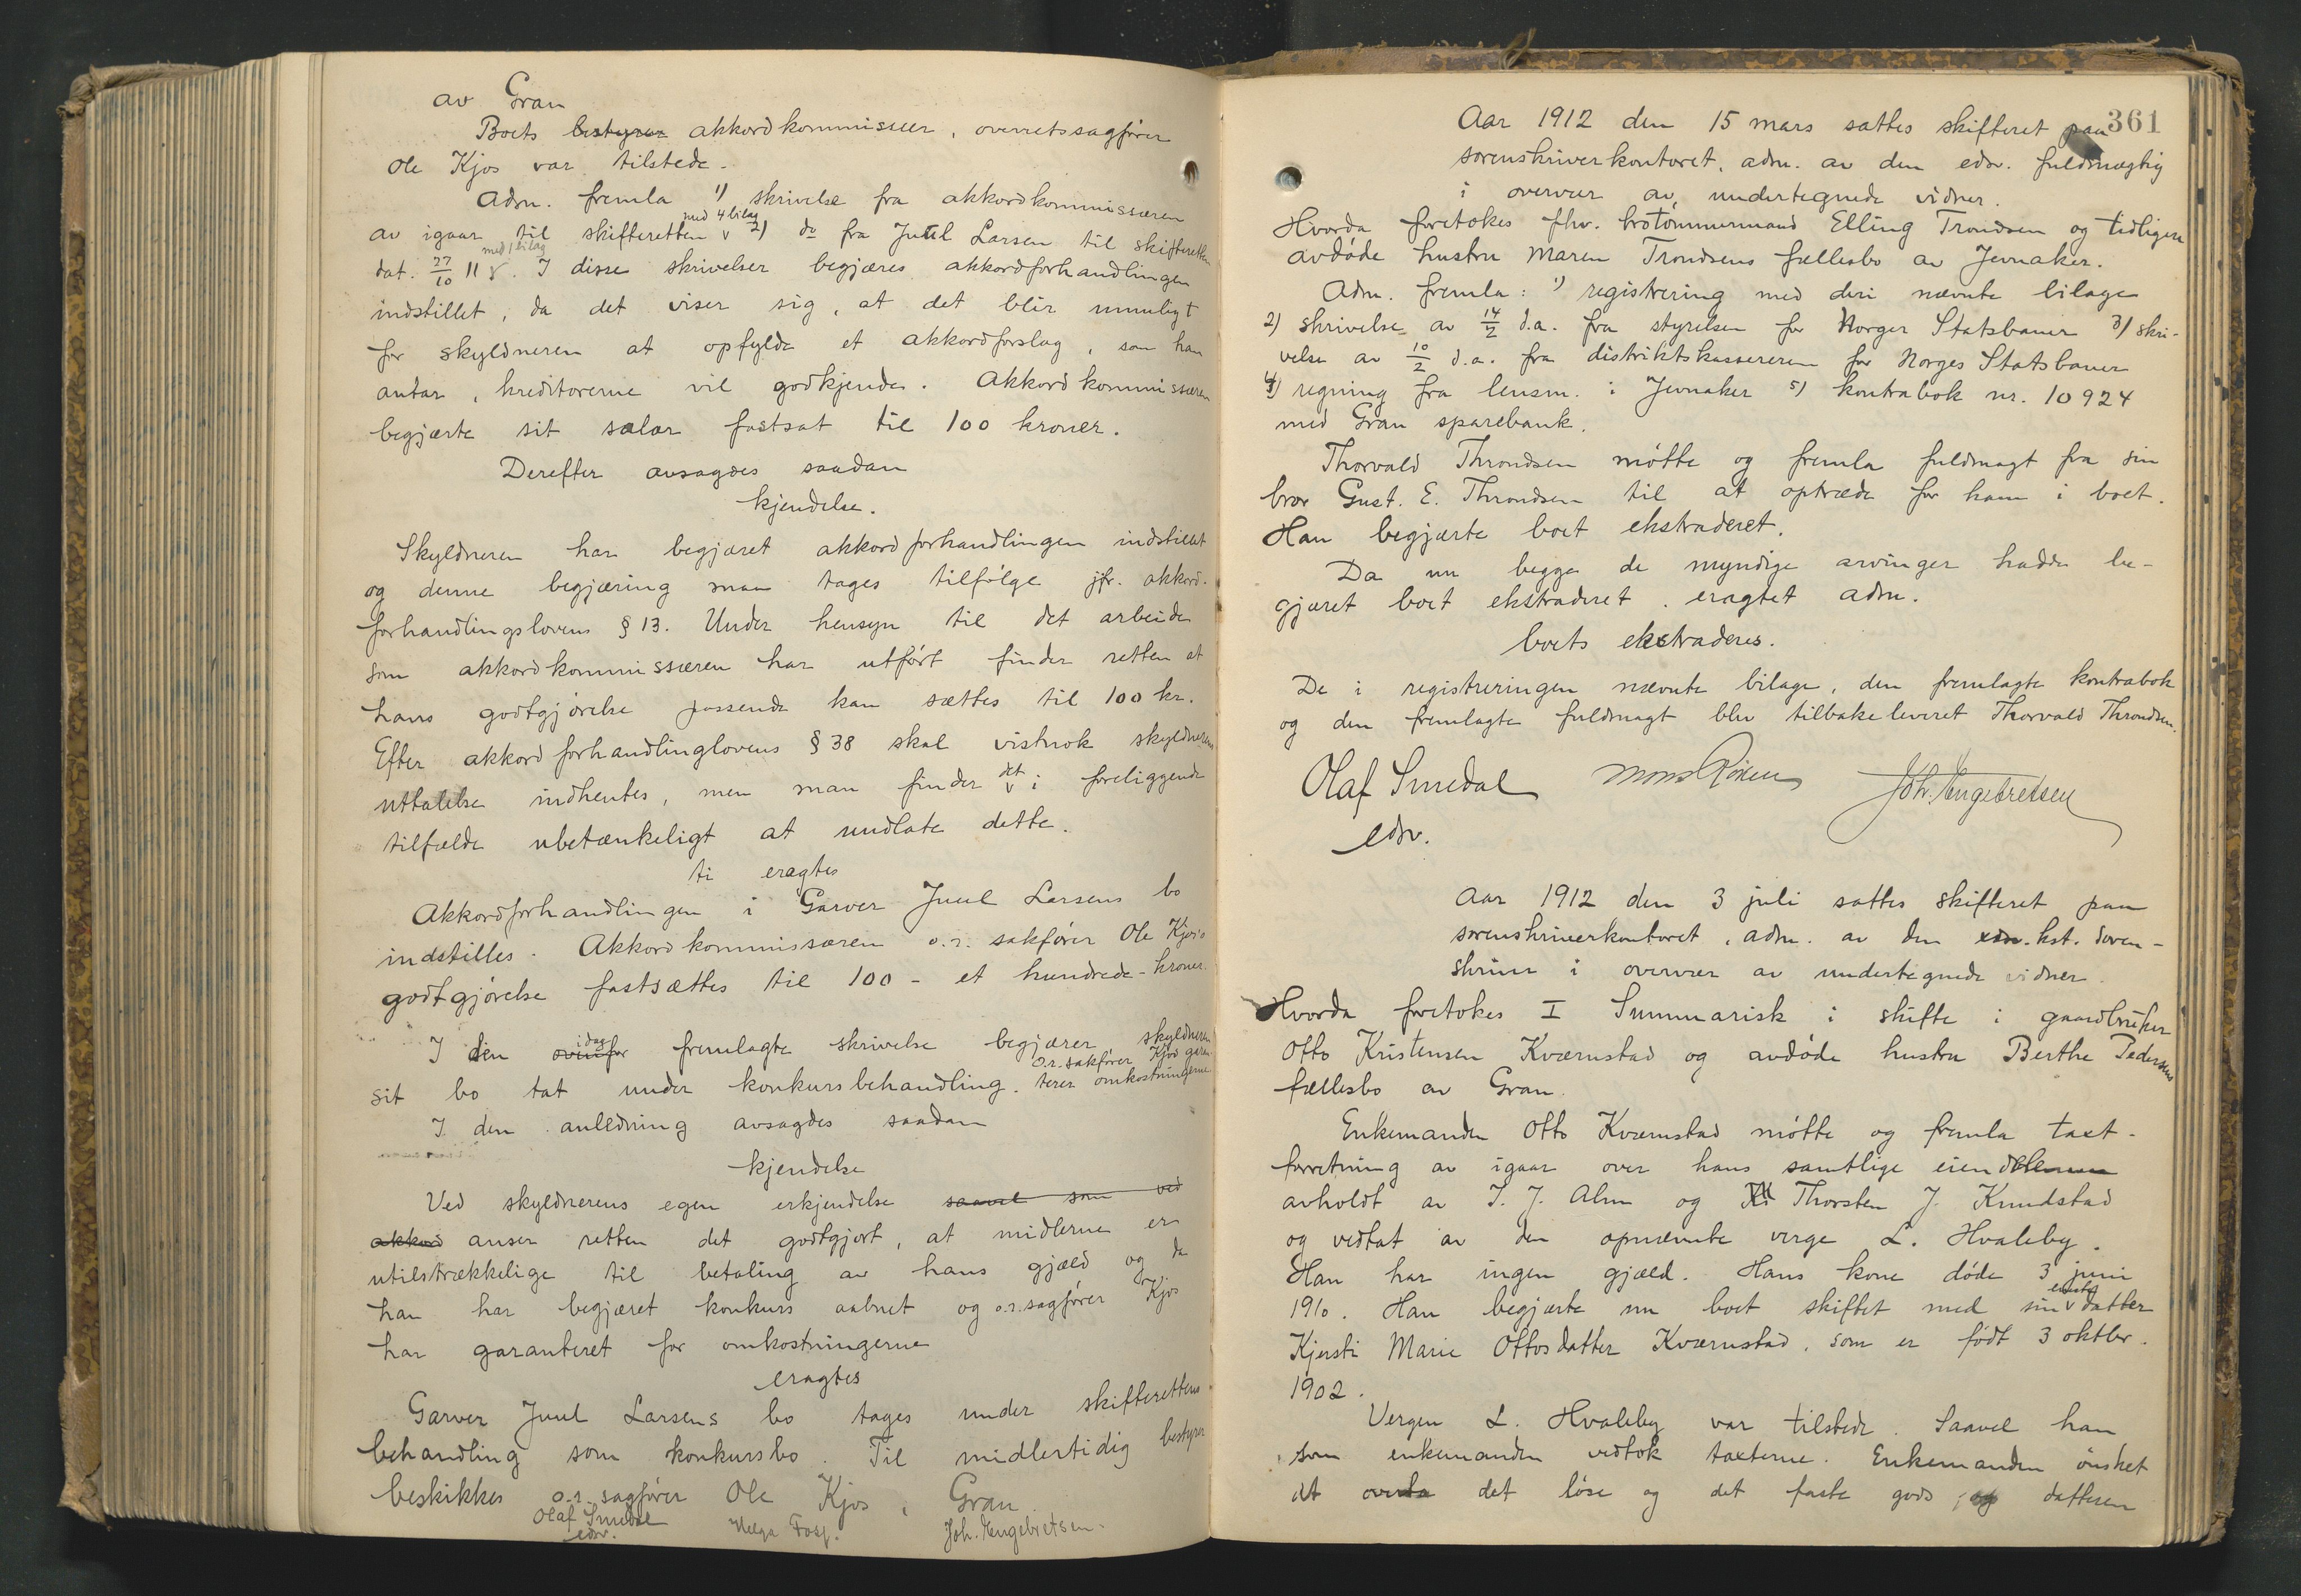 av Gran
Boets bestyrer akkordkommissær, overretssagfører
Ole Kjos var tilstede.
Adm. fremla 1) skrivelse fra akkordkommissæren
av igaar til skifteretten med 4 bilag 2) do fra Juul Larsen til skifteretten
dat. 27/10 11 med 1 bilag. I disse skrivelser begjæres akkordforhandlingen
indstillet, da det viser sig, at det blir umuligt
for skyldneren at opfylde et akkordforslag, som han
antar, kreditorerne vil godkjende. Akkordkommissæren
begjærte sit salær fastsat til 100 kroner.
Derefter avsagdes saadan
kjendelse.
Skyldneren har begjæret akkordforhandlingen indstillet
og denne begjæring maa tages tilfølge jfr. akkord-
forhandlingslovens § 13. Under hensyn til det arbeide
som akkordkommissæren har utført finder retten at
hans godtgjørelse passende kan sættes til 100 kr.
Efter akkordforhandlinglovens § 38 skal vistnok skyldnerens
uttalelse indhentes, men man finder det i foreliggende
tilfælde ubetænkeligt at undlate dette.
ti eragtes
Akkordforhandlingen i Garver Juul Larsens bo
indstilles. Akkordkommissæren o.r. sakfører Ole Kjos's
godtgjørelse fastsættes til 100 - et hundrede - kroner.
I den ovenfor idag fremlagte skrivelse begjærer skyldneren
sit bo tat under konkursbehandling. O.r. sakfører Kjos garan-
terer omkostningerne
I den anledning avsagdes saadan
kjendelse
Ved skyldnerens egen erkjendelse saavel som ved
akkord anser retten det godtgjort, at midlerne er
utilstrækkelige til betaling av hans gjæld og da
han har begjæret konkurs aabnet og o.r. sagfører Kjos
har garanteret for omkostningerne
eragtes
Garver Juul Larsens bo tages under skifterettens
behandling som konkursbo. Til midlertidig bestyrer
beskikkes o.r. sagfører Ole Kjos, Gran.
Olaf Smedal
edsv.
Helga Fosj.
Joh. Engebretsen.
361
Aar 1912 den 15 mars sattes skifteret paa
sorenskriverkontoret, adm. av den edsv. fuldmægtig
i overvær av undertegnede vidner.
Hvorda foretokes fhv. brotømmermand Elling Trondsen og tidligere
avdøde hustru Maren Trondsens fællesbo av Jevnaker.
Adm. fremla: 1) registrering med deri nævnte bilage
2) skrivelse av 14/2 d.a. fra styrelsen for Norges Statsbaner 3) skri-
velse av 10/2 d.a. fra distriktskassereren for Norges Statsbaner
4) regning fra lensm. i Jevnaker 5) kontrabok nr. 10924
med Gran sparebank.
Thorvald Throndsen møtte og fremla fuldmagt fra sin
bror Gust. E. Throndsen til at optræde for ham i boet.
Han begjærte boet ekstraderet.
Da nu begge de myndige arvinger hadde be-
gjæret boet ekstraderet, eragtet adm.
boets ekstraderes.
De i registreringen nævnte bilage, den fremlagte kontrabok
og den fremlagte fuldmagt blev tilbakeleveret Thorvald Throndsen.
Olaf Smedal
edsv.
Joh. Engebretsen
Aar 1912 den 3 juli sattes skifteret paa
sorenskriverkontoret, adm. av den edsv. kst. soren-
skriver i overvær av undertegnede vidner.
Hvorda foretokes I Summarisk i skifte i gaardbruker
Otto Kristensen Kværnstad og avdøde hustru Berthe Pedersens
fællesbo av Gran.
Enkemanden Otto Kværnstad møtte og fremla taxt-
forretning av igaar over hans samtlige eiendelene
avholdt av I. J. Alm og Thorsten J. Knudstad
og vedtat av den opnævnte verge L. Hvaleby.
Han har ingen gjæld. Hans kone døde 3 juni
1910. Han begjærte nu boet skiftet med sin eneste datter
Kjersti Marie Ottosdatter Kværnstad, som er født 3 oktbr.
1902.
Vergen L. Hvaleby var tilstede. Saavel han
som enkemanden vedtok taxterne. Enkemanden ønsket
at overta det løse og det faste gods, og datteren